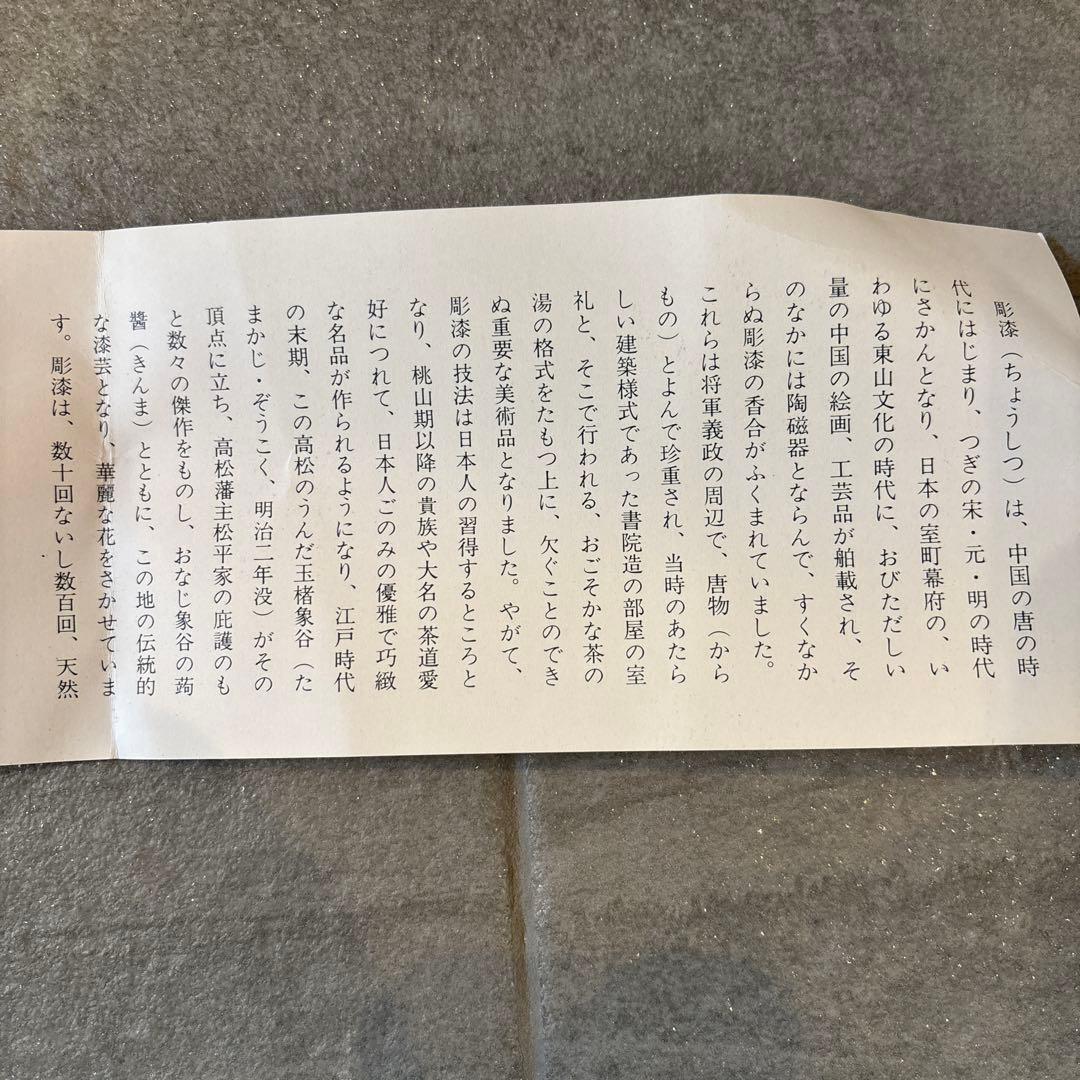 彫漆（ちょうしつ）は、中国の唐の時
代にはじまり、つぎの宋・元・明の時代
にさかんとなり、日本の室町幕府の、い
わゆる東山文化の時代に、おびただしい
量の中国の絵画、工芸品が舶載され、そ
のなかには陶磁器とならんで、すくなか
らぬ彫漆の香合がふくまれていました。
これらは将軍義政の周辺で、唐物（から
もの）とよんで珍重され、当時のあたら
しい建築様式であった書院造の部屋の室
礼と、そこで行われる、おごそかな茶の
湯の格式をたもつ上に、欠ぐことのでき
ぬ重要な美術品となりました。やがて、
彫漆の技法は日本人の習得するところと
なり、桃山期以降の貴族や大名の茶道愛
好につれて、日本人ごのみの優雅で巧緻
な名品が作られるようになり、江戸時代
の末期、この高松のうんだ玉楮象谷（た
まかじ・ぞうこく、明治二年没）がその
頂点に立ち、高松藩主松平家の庇護のも
と数々の傑作をものし、おなじ象谷の蒟
醬（きんま）とともに、この地の伝統的
な漆芸となり、華麗な花をさかせていま
す。彫漆は、数十回ないし数百回、天然